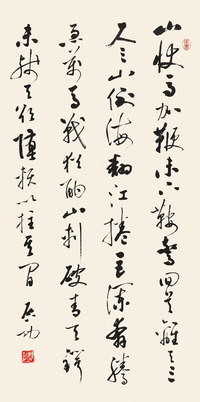 山快马加鞭未下鞍惊回首离天三
尺三山倒海翻江卷巨澜奔腾
急万马战犹酣山刺破青天锷
未残天欲堕赖以拄其间 启功